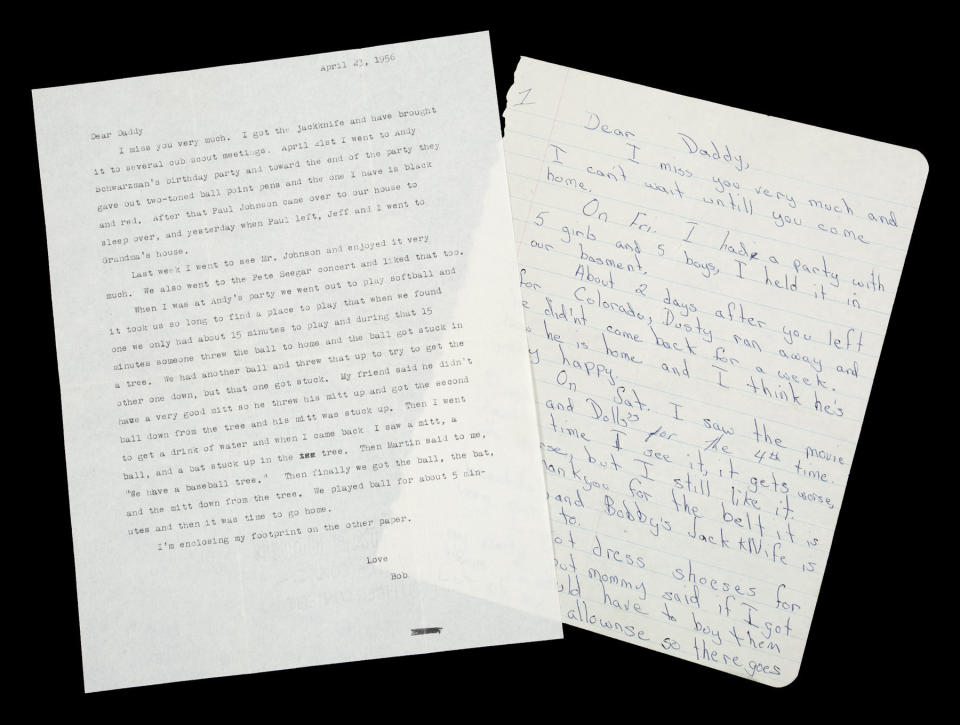 April 23, 1956
Dear Daddy
I miss you very much. I got the jackknife and have brought
it to several cub scout meetings. April 21st I went to Andy
Schwarzman's birthday party and toward the end of the party they
gave out two-toned ball point pens and the one I have is black
and red. After that Paul Johnson came over to our house to
sleep over, and yesterday when Paul left, Jeff and I went to
Grandma's house.
Last week I went to see Mr. Johnson and enjoyed it very
much. We also went to the Pete Seegar concert and liked that too.
When I was at Andy's party we went out to play softball and
it took us so long to find a place to play that when we found
one we only had about 15 minutes to play and during that 15
minutes someone threw the ball to home and the ball got stuck in
a tree. We had another ball and threw that up to try to get the
other one down, but that one got stuck. My friend said he didn't
have a very good mitt so he threw his mitt up and got the second
ball down from the tree and his mitt was stuck up. Then I went
to get a drink of water and when I came back I saw a mitt, a
ball, and a bat stuck up in the tree. Then Martin said to me,
"We have a baseball tree." Then finally we got the ball, the bat,
and the mitt down from the tree. We played ball for about 5 min-
utes and then it was time to go home.
I'm enclosing my footprint on the other paper.
Love
Bob
1
Dear Daddy,
I miss you very much and
I can't wait untill you come
home.
On Fri. I had a party with
5 girls and 5 boys, I held it in
our basment.
About 2 days after you left
for Colorado, Dusty ran away and
didn't come back for a week.
he is home and I think he's
happy.
On Sat. I saw the movie
and Dolls" for the 4th time.
time I see it, it gets worse,
but I still like it.
you for the belt it is
and Bobby's JacktKNife is
to.
dress shoeses for
mommy said if I got
have to buy them
allownse so there goes